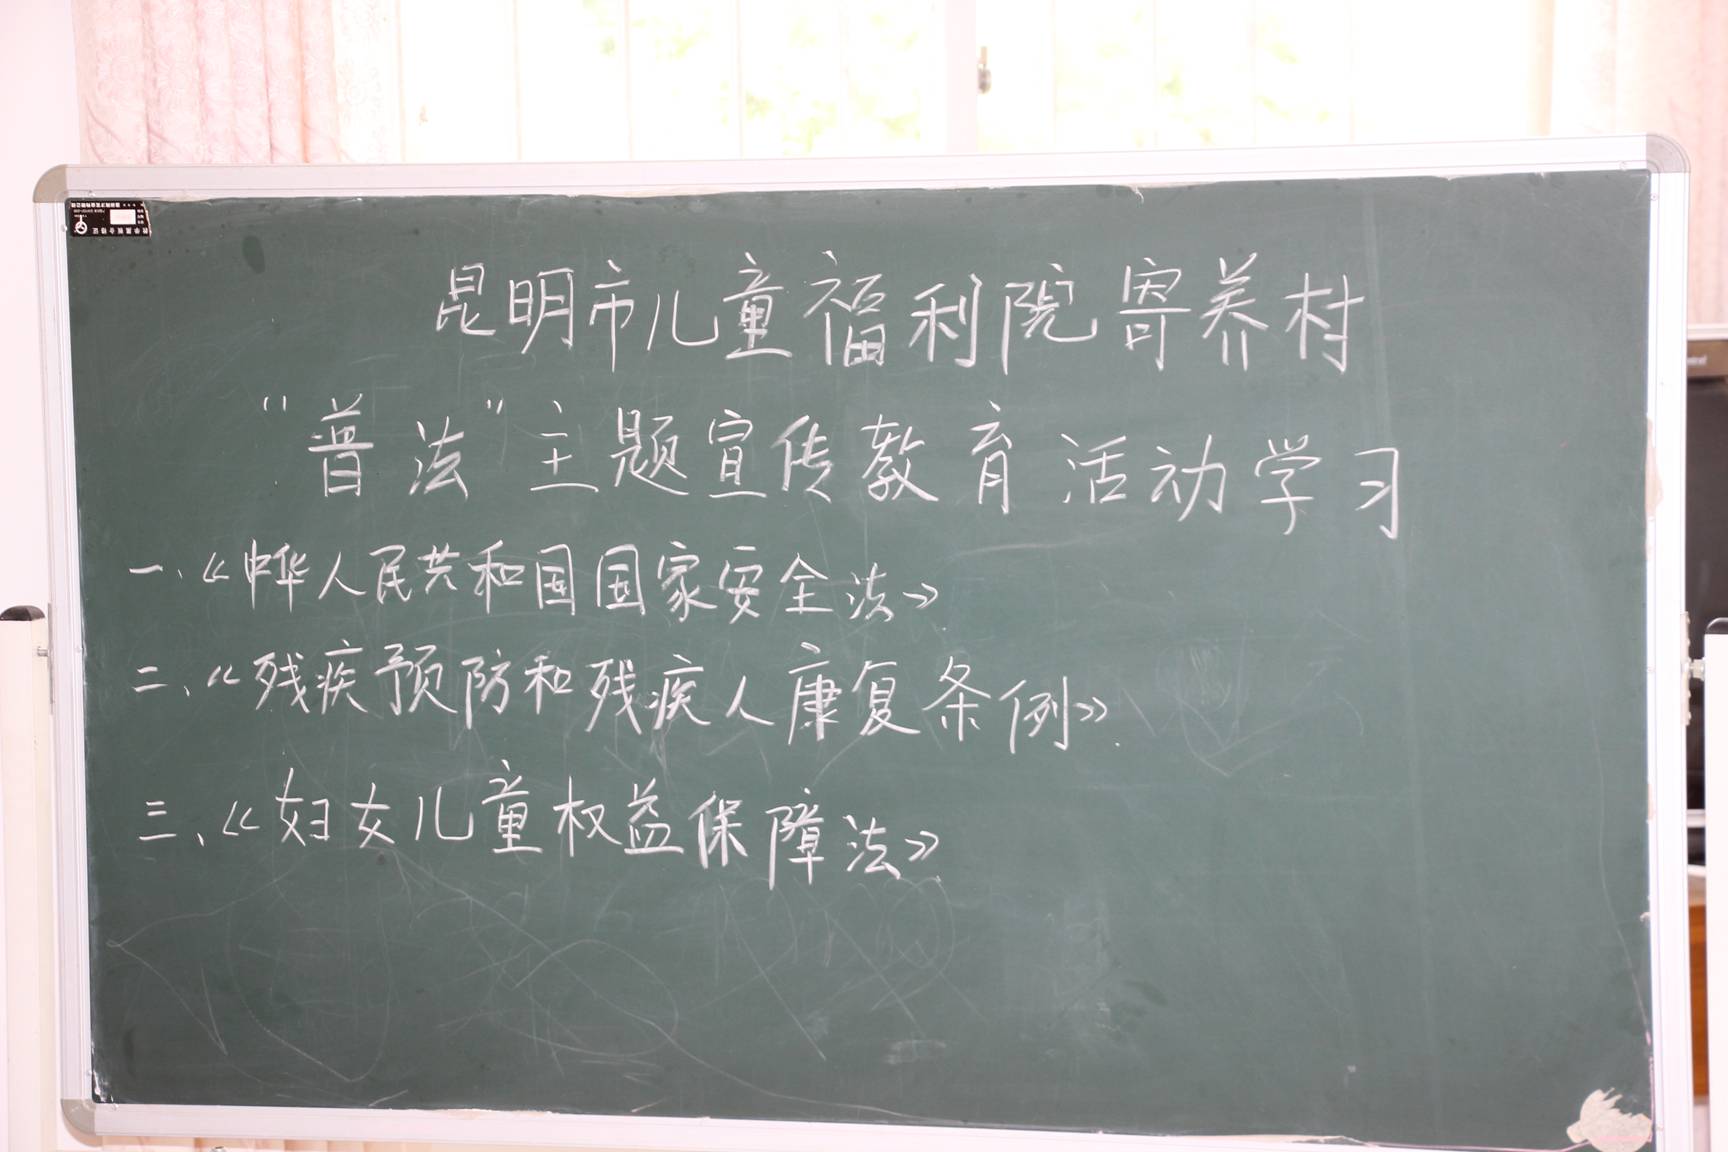 昆明市儿童福利院寄养村
“普法”主题宣传教育活动学习
一、《中华人民共和国国家安全法》
二、《残疾预防和残疾人康复条例》
三、《妇女儿童权益保障法》